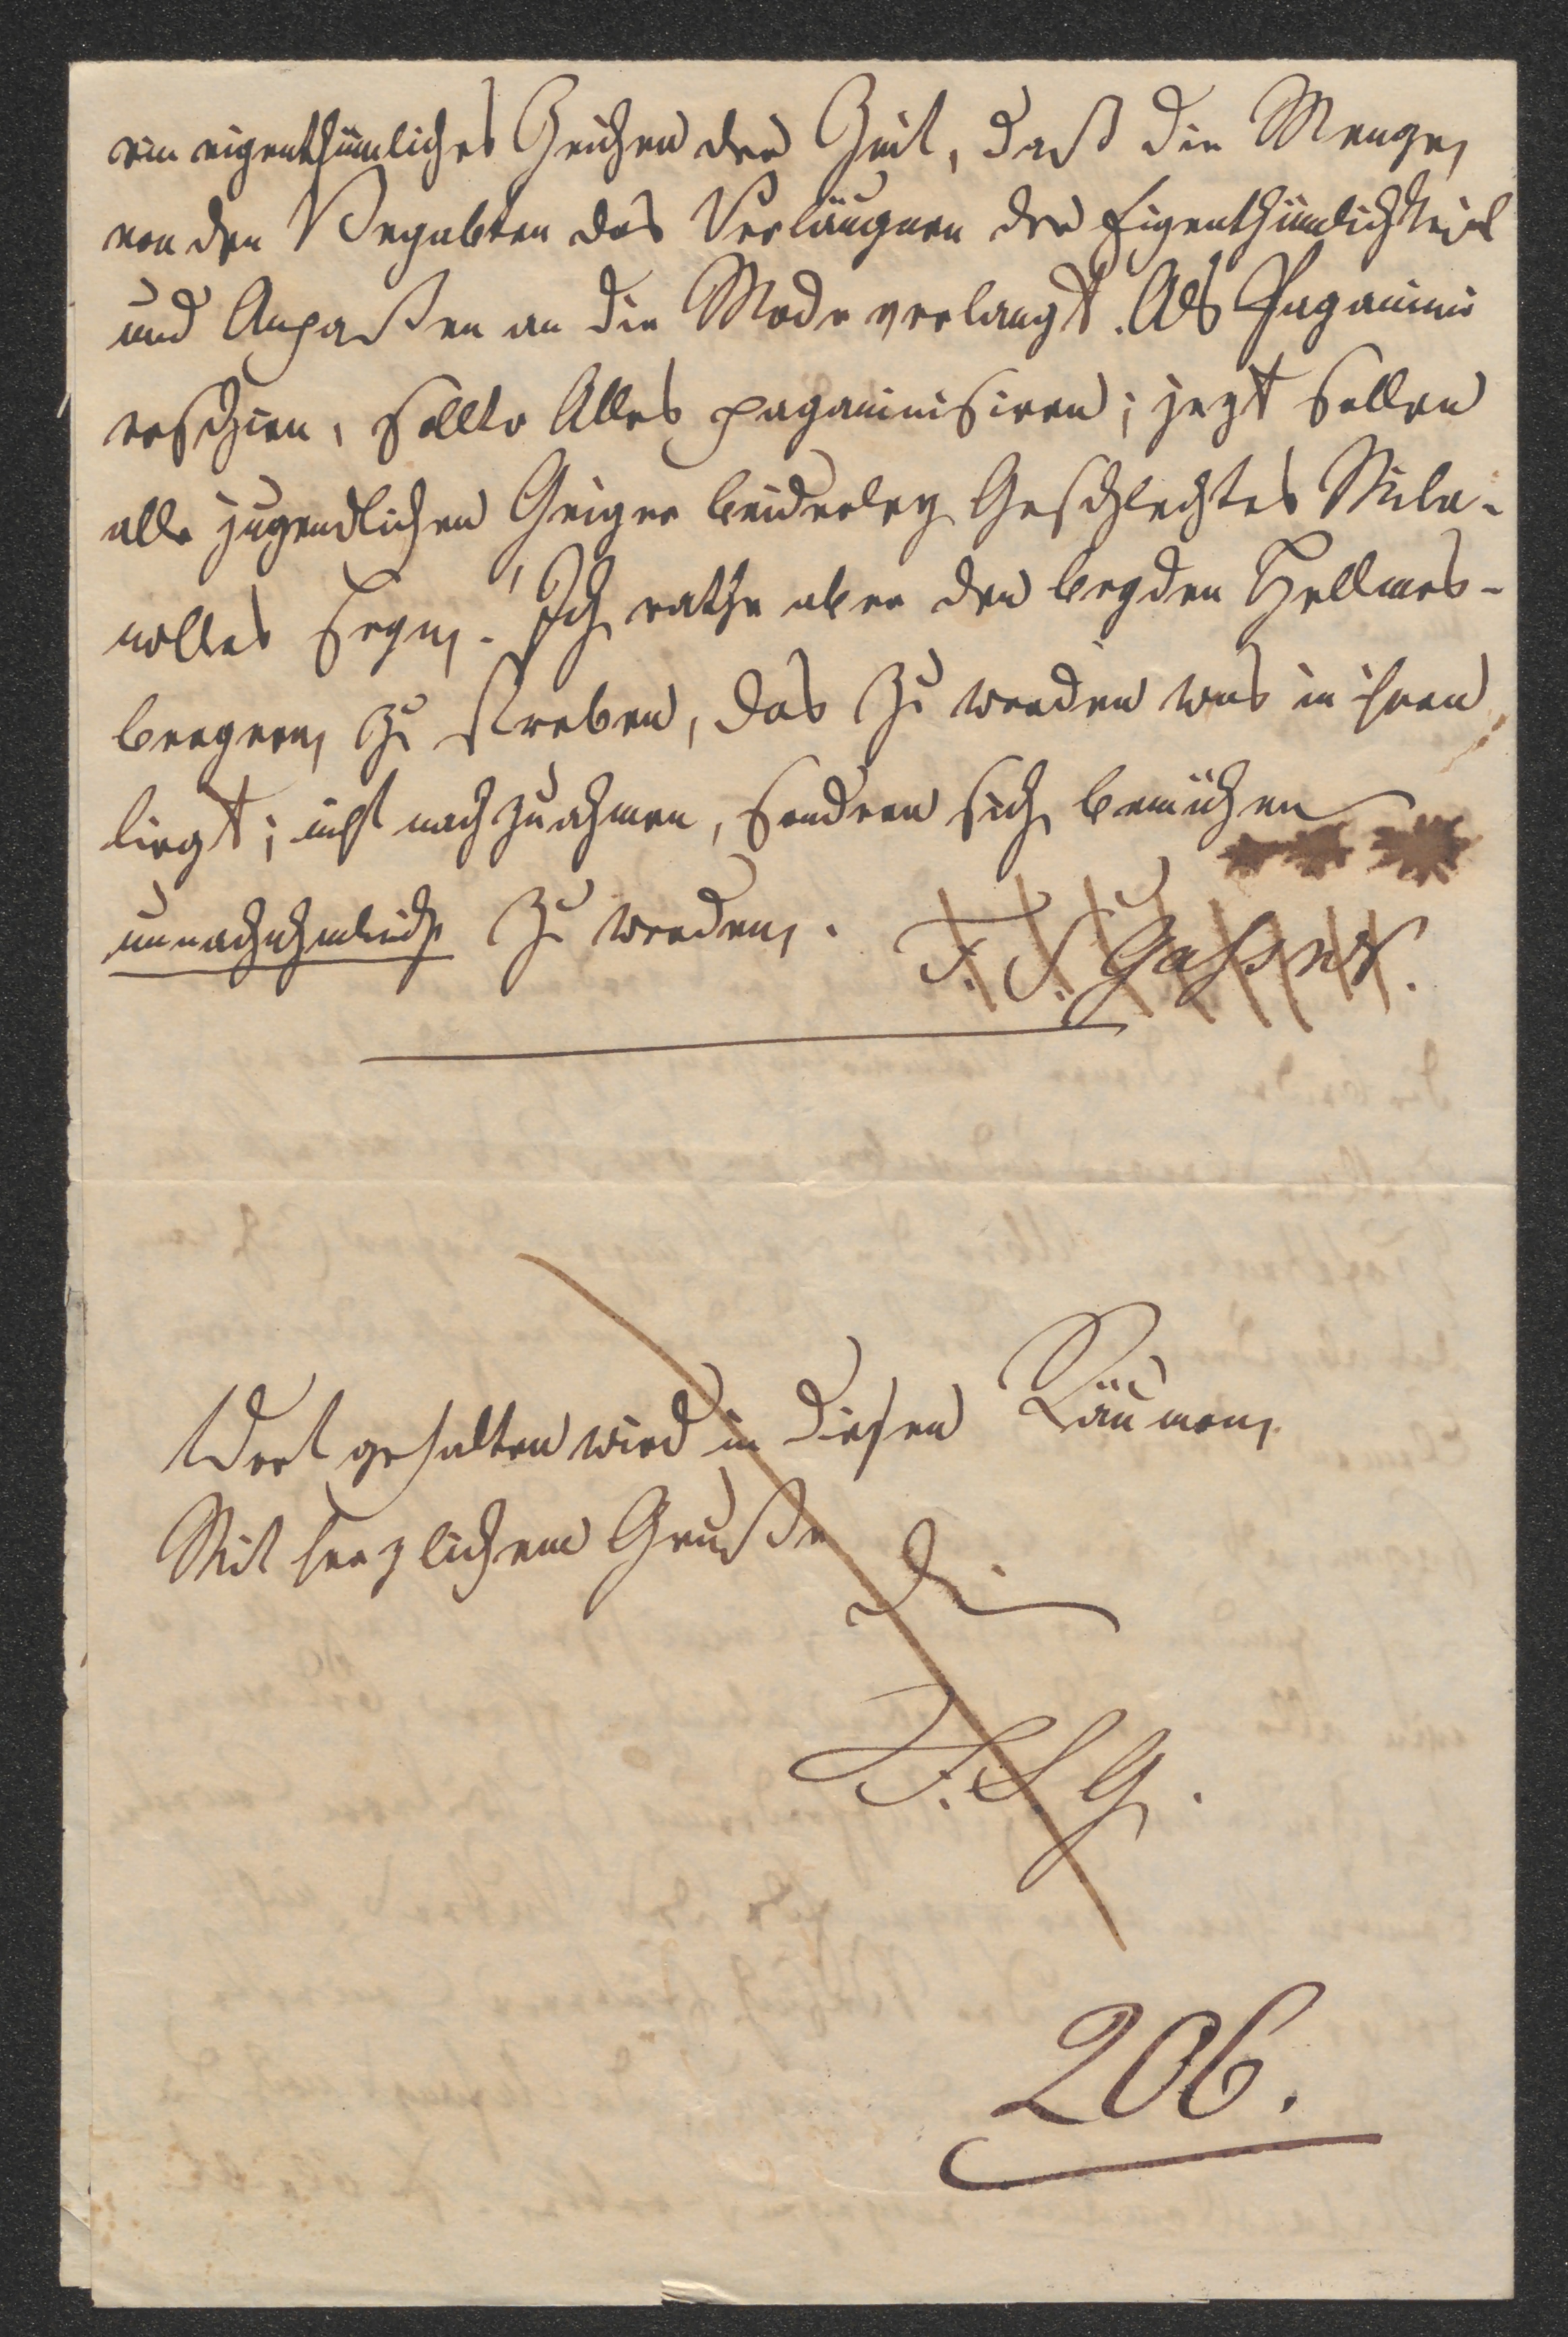 ein eigenthümliches Zeichen der Zeit, daß die Menge,
von den Begabten das Verläugnen der Eigenthümlichkeit
und Anpaßen an die Mode verlangt. Als Paganini
erschien, sollte Alles paganinisiren; jezt sollen
alle jugendlichen Geiger beiderley Geschlechtes Mila-
nolles seyn. Ich rathe aber den beyden Hellmes-
bergern, zu streben, das zu werden was in ihnen
liegt; nicht nachzuahmen, sondern sich bemühen
unnachahmlich zu werden.
F. S. Gaßner.
Wort gehalten wird in diesen Räumen,
Mit herzlichem Gruße
Dein
F. S. G.
206.